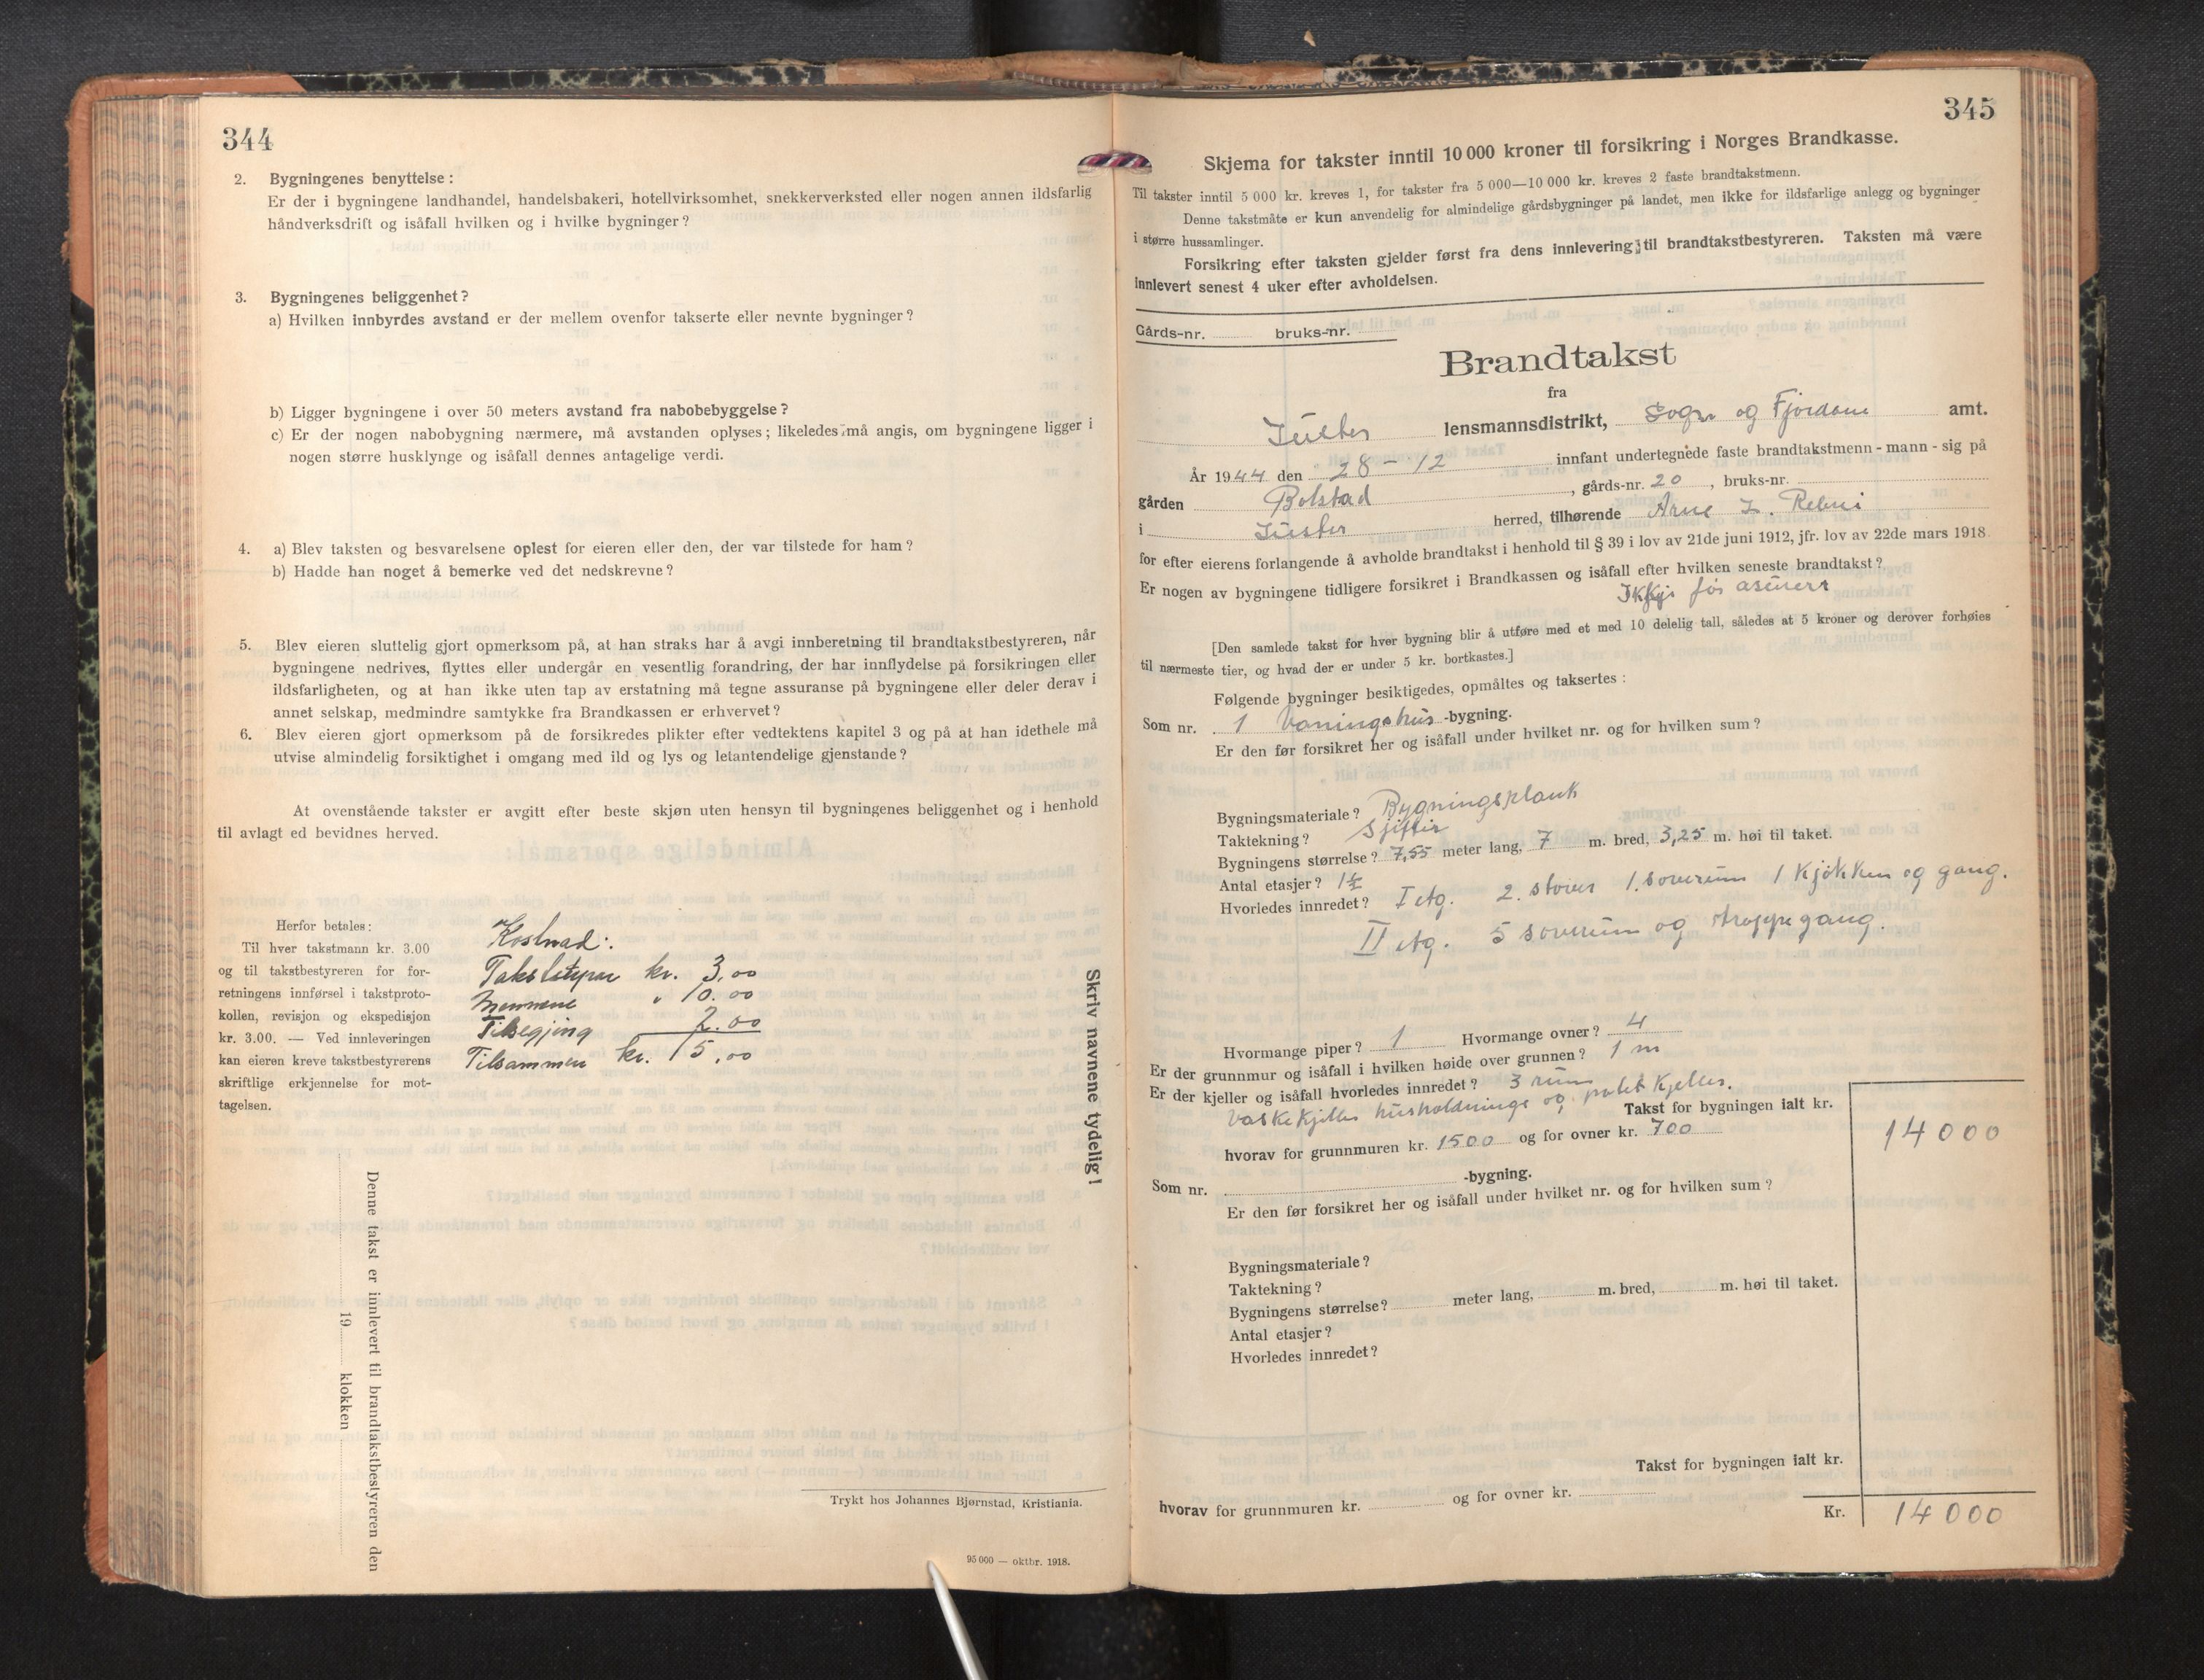 344
2. Bygningenes benyttelse:
Er der i bygningene landhandel, handelsbakeri, hotellvirksomhet, snekkerverksted eller nogen annen ildsfarlig
håndverksdrift og isåfall hvilken og i hvilke bygninger?
3. Bygningenes beliggenhet?
a) Hvilken innbyrdes avstand er der mellem ovenfor takserte eller nevnte bygninger?
b) Ligger bygningene i over 50 meters avstand fra nabobebyggelse?
c) Er der nogen nabobygning nærmere, må avstanden oplyses; likeledes må angis, om bygningene ligger i
nogen større husklynge og isåfall dennes antagelige verdi.
4. a) Blev taksten og besvarelsene oplest for eieren eller den, der var tilstede for ham?
b) Hadde han noget å bemerke ved det nedskrevne?
5. Blev eieren sluttelig gjort opmerksom på, at han straks har å avgi innberetning til brandtakstbestyreren, når
bygningene nedrives, flyttes eller undergår en vesentlig forandring, der har innflydelse på forsikringen eller
ildsfarligheten, og at han ikke uten tap av erstatning må tegne assuranse på bygningene eller deler derav i
annet selskap, medmindre samtykke fra Brandkassen er erhvervet?
6. Blev eieren gjort opmerksom på de forsikredes plikter efter vedtektens kapitel 3 og på at han idethele må
utvise almindelig forsiktighet i omgang med ild og lys og letantendelige gjenstande?
At ovenstående takster er avgitt efter beste skjøn uten hensyn til bygningenes beliggenhet og i henhold
til avlagt ed bevidnes herved.
Herfor betales:
Til hver takstmann kr. 3.00
og til takstbestyreren for for-
retningens innførsel i takstproto-
kollen, revisjon og ekspedisjon
kr. 3.00. — Ved innleveringen
kan eieren kreve takstbestyrerens
skriftlige erkjennelse for mot-
tagelsen.
Kostnad:
kr. 3.00
Mennene " 10.00
2.00
Tilsammen kr. 15.00
Skriv navnene tydelig!
Denne takst er innlevert til brandtakstbestyreren den
19 klokken
Trykt hos Johannes Bjørnstad, Kristiania.
95 000 — oktbr. 1918.
345
Skjema for takster inntil 10 000 kroner til forsikring i Norges Brandkasse.
Til takster inntil 5 000 kr. kreves 1, for takster fra 5 000—10 000 kr. kreves 2 faste brandtakstmenn.
Denne takstmåte er kun anvendelig for almindelige gårdsbygninger på landet, men ikke for ildsfarlige anlegg og bygninger
i større hussamlinger.
Forsikring efter taksten gjelder først fra dens innlevering til brandtakstbestyreren. Taksten må være
innlevert senest 4 uker efter avholdelsen.
Gårds-nr. bruks-nr.
Brandtakst
fra
Luster lensmannsdistrikt, Sogn og Fjordane amt.
År 1944 den 28-12 innfant undertegnede faste brandtakstmenn - mann - sig på
gården Bolstad, gårds-nr. 20, bruks-nr.
i Luster herred, tilhørende Arne L.
for efter eierens forlangende å avholde brandtakst i henhold til § 39 i lov av 21de juni 1912, jfr. lov av 22de mars 1918.
Er nogen av bygningene tidligere forsikret i Brandkassen og isåfall efter hvilken seneste brandtakst?
[Den samlede takst for hver bygning blir å utføre med et med 10 delelig tall, således at 5 kroner og derover forhøies
til nærmeste tier, og hvad der er under 5 kr. bortkastes.]
Følgende bygninger besiktigedes, opmåltes og taksertes:
Som nr. 1 Våningshus -bygning.
Er den før forsikret her og isåfall under hvilket nr. og for hvilken sum?
Bygningsmateriale? Bygningsplank
Taktekning? Sjiffer
Bygningens størrelse? 7,55 meter lang, 7 m. bred, 3,25 m. høi til taket.
Antal etasjer? 1½
Hvorledes innredet? I etg. 2. stover 1. soverum 1 kjøkken og gang.
II etg. 5 soverum og trappegang.
Hvormange piper? 1 Hvormange ovner? 4
Er der grunnmur og isåfall i hvilken høide over grunnen? 1 m
Er der kjeller og isåfall hvorledes innredet? 3 rum
Vaskekjeller husholdnings og potetkjeller.
Takst for bygningen ialt kr. 14000
hvorav for grunnmuren kr. 1500 og for ovner kr. 700
Som nr. -bygning.
Er den før forsikret her og isåfall under hvilket nr. og for hvilken sum?
Bygningsmateriale?
Taktekning?
Bygningens størrelse? meter lang, m. bred, m. høi til taket.
Antal etasjer?
Hvorledes innredet?
Takst for bygningen ialt kr.
hvorav for grunnmuren kr. og for ovner kr.
Kr. 14000